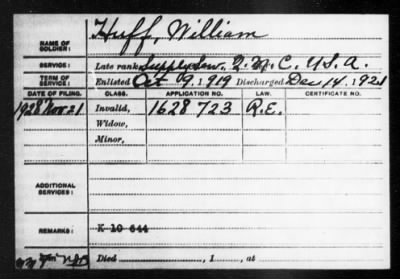 NAME OF SOLDIER: Huff, William
SERVICE: Late rank Supply Ser, Q.M.C. U.S.A.
TERM OF SERVICE: Enlisted Oct 9, 1919 Discharged Dec 14, 1921
DATE OF FILING. CLASS. APPLICATION NO. LAW. CERTIFICATE NO.
1928 Nov 21 Invalid, 1628 723 R.E.
Widow,
Minor,
ADDITIONAL SERVICES:
REMARKS: K 10 644
Died , 1 , at